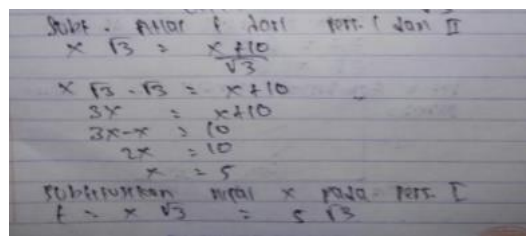 Subt. nilai t dari pers. I dan II
x √3 = x+10
√3
x √3 . √3 = x+10
3x = x+10
3x-x = 10
2x = 10
x = 5
Substitusikan nilai x pada pers. I
t = x √3 = 5 √3